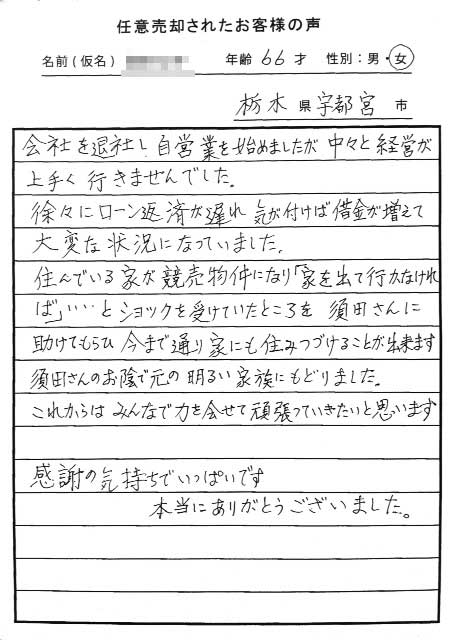 任意売却されたお客様の声
名前(仮名) 年齢 66 才 性別:男・女
栃木 県 宇都宮 市
会社を退社し、自営業を始めましたが 中々と経営が
上手く行きませんでした。
徐々にローン返済が遅れ 気が付けば借金が増えて
大変な状況になっていました。
住んでいる家が競売物件になり「家を出て行かなけれ
ば」‥‥とショックを受けていたところを 須田さんに
助けてもらひ 今まで通り家にも住みつづけることが出来ます
須田さんのお陰で元の明るい家族にもどりました。
これからは みんなで力を会せて頑張っていきたいと思います
感謝の気持ちでいっぱいです
本当にありがとうございました。